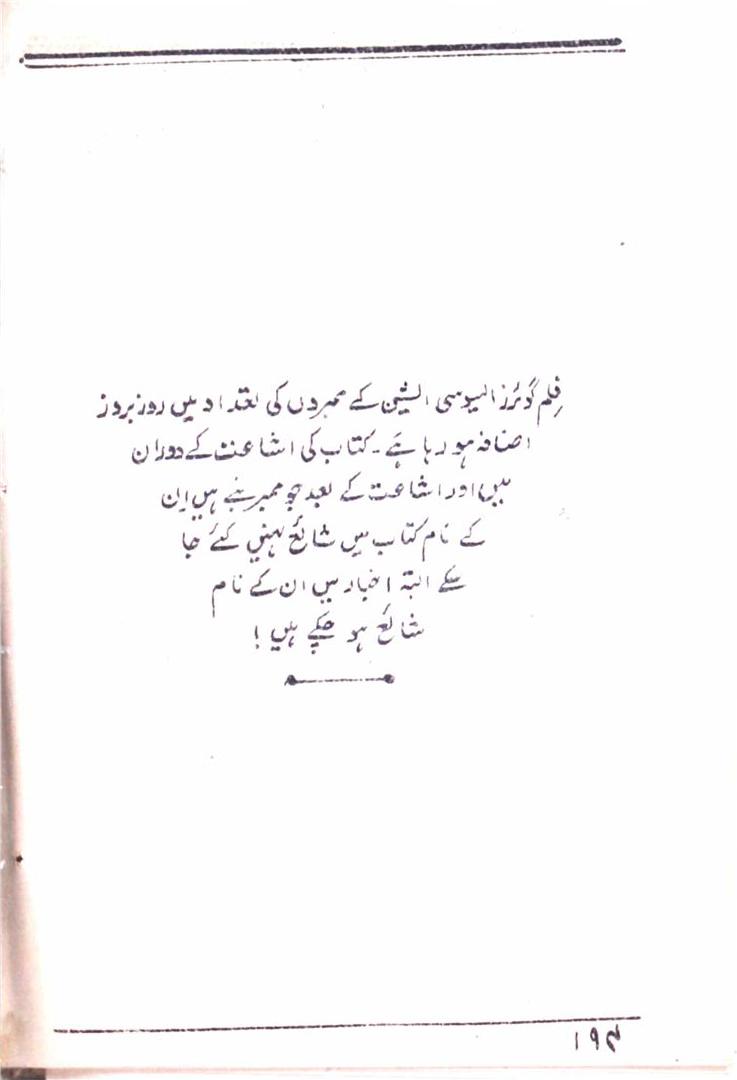 فلم گوئرز ایسوسی ایشن کے ممبروں کی تعداد میں روز بروز
اضافہ ہو رہا ہے۔ کتاب کی اشاعت کے دوران
میں اور اشاعت کے بعد جو ممبر بنے ہیں اِن
کے نام کتاب میں شائع نہیں کئے جا
سکے البتہ اخبار میں ان کے نام
شائع ہو چکے ہیں!
۱۹۴